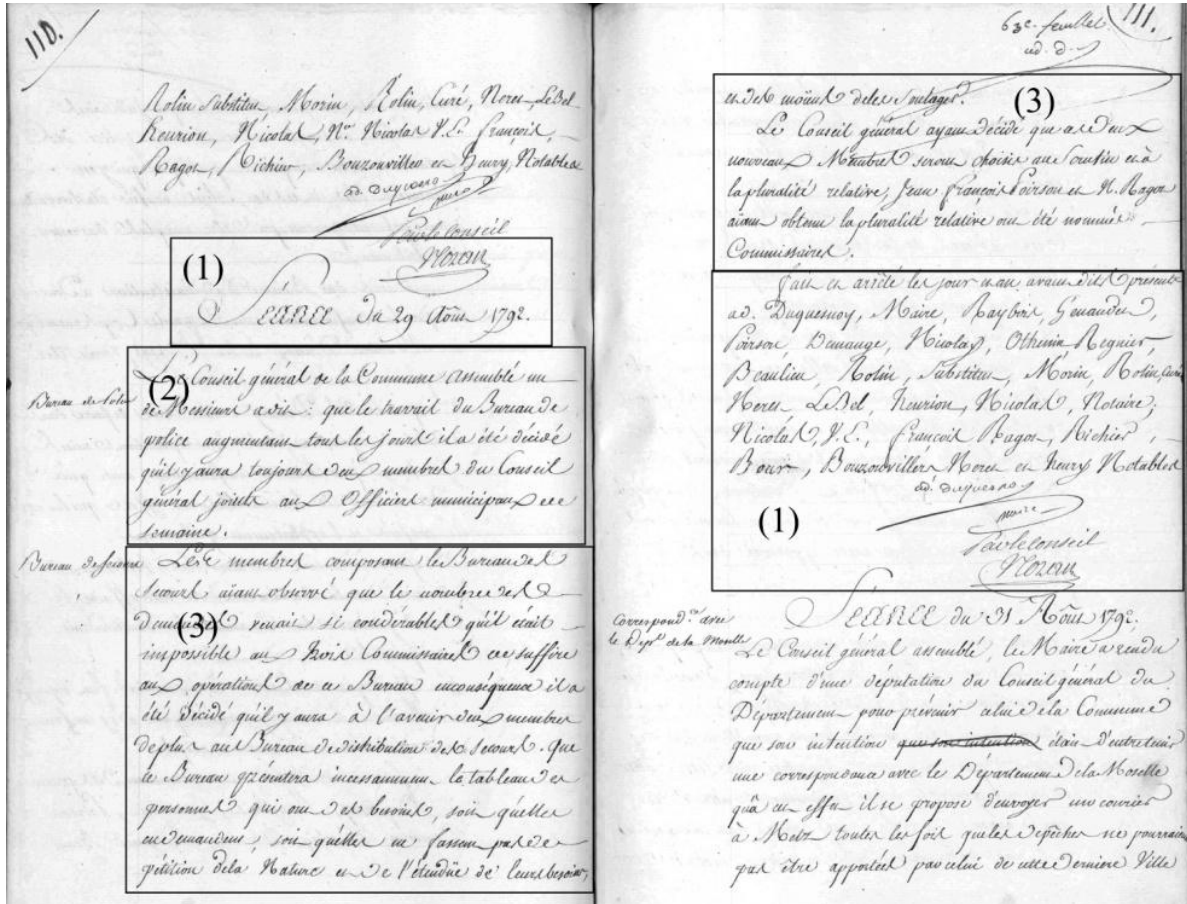 110.
Rolin Substitut, Morin, Rolin, Curé, Nores, LeBel
Henrion, Nicolas, Nre. Nicolas V.L. François
Ragot, Richier, Bouzonviller et Henry, Notables
ad. Duquesnoy
maire
Par le Conseil
Moreau
(1)
Séance du 29 Août 1792.
(2)
Le Conseil général de la Commune assemblé un
Bureau de Police
de Messieurs a dit: que le travail du Bureau de
police augmentant tous les jours il a été décidé
qu'il y aura toujours deux membres du Conseil
général joints aux Officiers municipaux de
semaine.
Bureau de secours
Les membres composant le Bureau des
secours aiant observé que le nombre des
(3)
demandes venait si considérables qu'il était
impossible aux trois Commissaires de suffire
aux opérations de ce Bureau enconséquence il a
été décidé qu'il y aura à l'avenir deux membres
de plus au Bureau de distribution des secours. Que
le Bureau présentera incessamment le tableau des
personnes qui ont des besoins, soit qu'elles
en demandent, soit qu'elles ne fassent pas de
pétition de la Nature et de l'étendüe de leurs besoins,
63e. feuillet
111.
ad. D
et des moiens de les soulager.
(3)
Le Conseil général ayant décidé que ces deux
nouveaux Membres seront choisis au Scrutin et à
la pluralité relative, Jean François Poirson et N. Ragot
aiant obtenu la pluralité relative ont été nommés
Commissaires.
fait et arrêté les jour et an avant dits présents
ad. Duquesnoy, Maire, Raybois, Genaudet,
Poirson Demange, Nicolas, Othenin Regnier,
Beaulieu, Rolin, Substitut, Morin, Rolin, Curé
Nores, LeBel, Henrion, Nicolas, Notaire,
Nicolas, V.L., François Ragot, Richier,
Bour, Bouzonviller Nores et Henry Notables
ad. Duquesnoy
(1)
maire
Par le Conseil
Moreau
Séance du 31 Août 1792.
Correspond.ce avec
le Dept. de la Moselle
Le Conseil général assemblé, le Maire a rendu
compte d'une députation du Conseil général du
Département pour prévenir celui de la Commune
que son intention que son intention était d'entretenir
une correspondance avec le Département de la Moselle
qu'à cet effet il se propose d'envoyer un courier
à Metz toutes les fois que les dépêches ne pourraient
pas être apportées par celui de cette derniere Ville